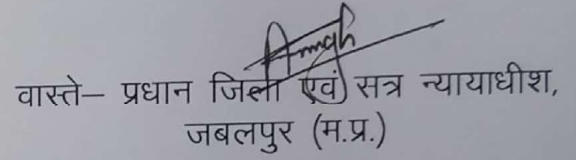 वास्ते– प्रधान जिला एवं सत्र न्यायाधीश,
जबलपुर (म.प्र.)